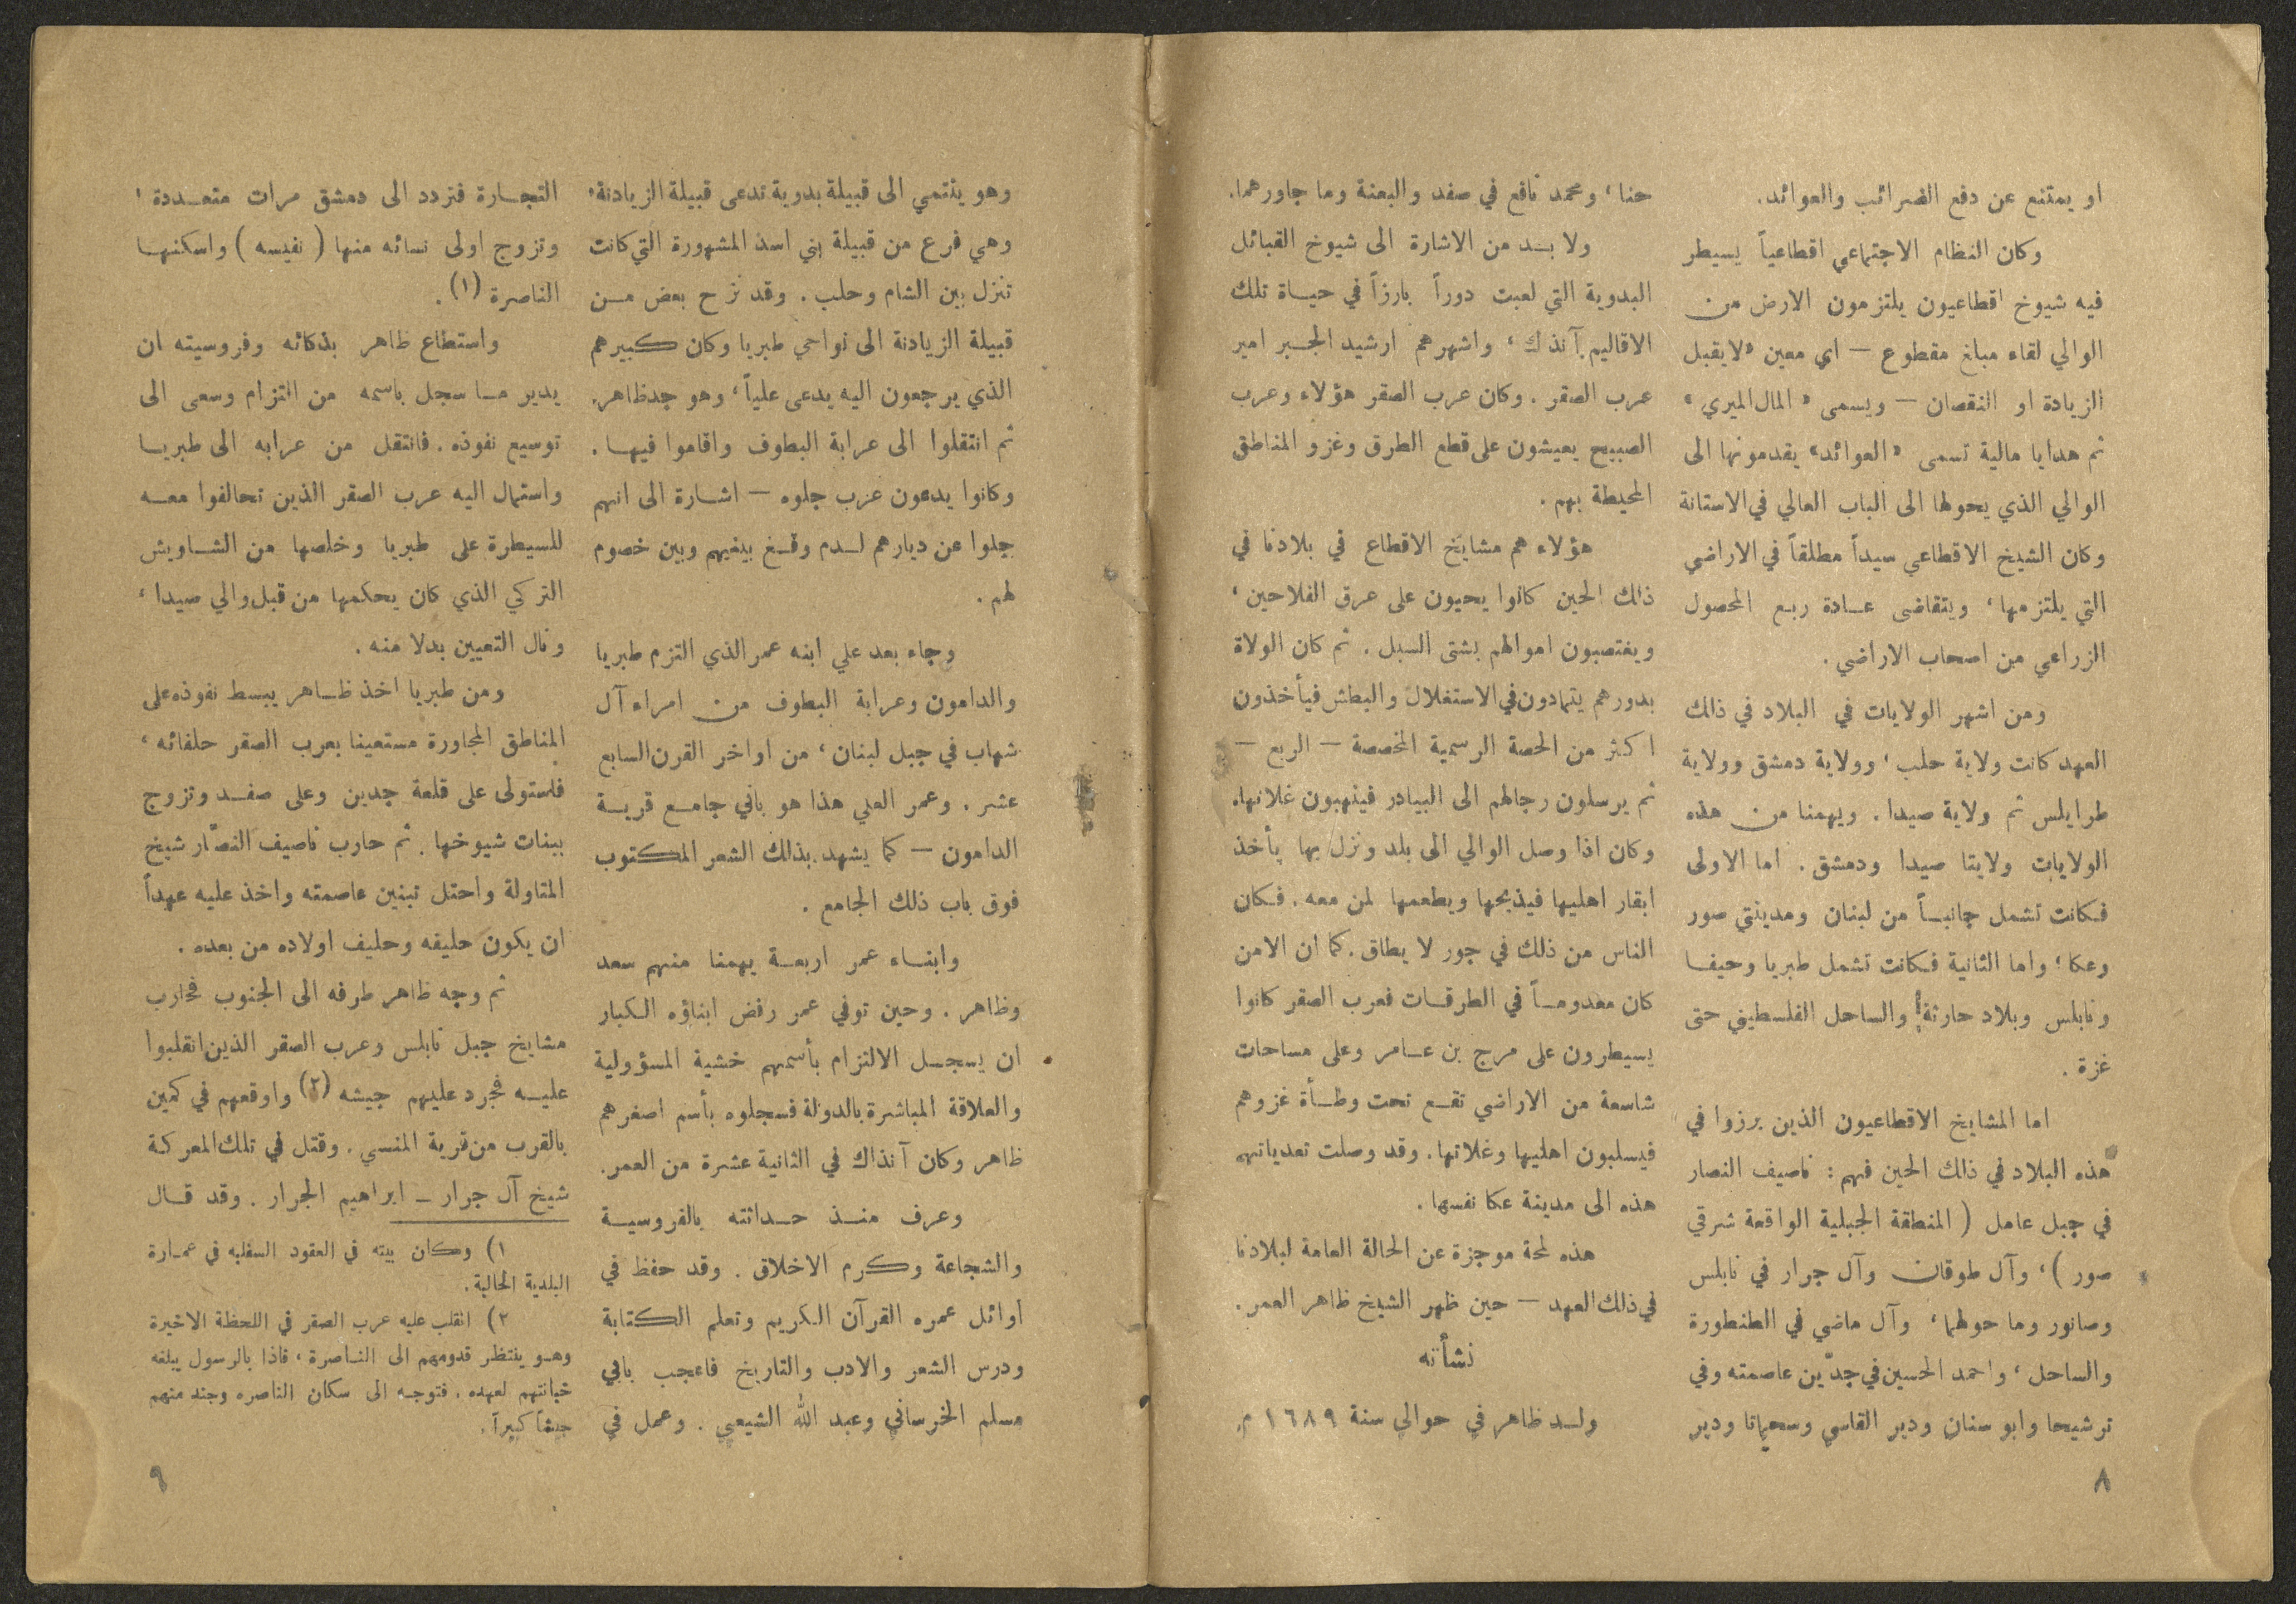 او يمتنع عن دفع الضرائب والعوائد.
وكان النظام الاجتماعي اقطاعياً يسيطر
فيه شيوخ اقطاعيون يلتزمون الارض من
الوالي لقاء مبلغ مقطوع — اي معين «لايقبل
الزيادة او النقصان — ويسمى «المال الميري»
ثم هدايا مالية تسمى «العوائد» يقدمونها الى
الوالي الذي يحولها الى الباب العالي في الاستانة
وكان الشيخ الاقطاعي سيداً مطلقاً في الاراضي
التي يلتزمها، ويتقاضى عادة ربع المحصول
الزراعي من اصحاب الاراضي.
ومن اشهر الولايات في البلاد في ذالك
العهد كانت ولاية حلب، وولاية دمشق وولاية
طرابلس ثم ولاية صيدا. ويهمنا من هذه
الولايات ولايتا صيدا ودمشق. اما الاولى
فكانت تشمل جانباً من لبنان ومدينتي صور
وعكا، واما الثانية فكانت تشمل طبريا وحيفا
ونابلس وبلاد حارثة والساحل الفلسطيني حتى
غزة.
اما المشايخ الاقطاعيون الذين برزوا في
هذه البلاد في ذالك الحين فهم: ناصيف النصار
في جبل عامل (المنطقة الجبلية الواقعة شرقي
صور)، وآل طوقان وآل جرار في نابلس
وصانور وما حولهما، وآل ماضي في الطنطورة
والساحل، واحمد الحسين في جدّين عاصمته وفي
ترشيحا وابو سنان ودير القاسي وسحماتا ودير
٨
حنا، ومحمد نافع في صفد والبعنة وما جاورهما.
ولا بد من الاشارة الى شيوخ القبائل
البدوية التي لعبت دوراً بارزاً في حياة تلك
الاقاليم آنذك، واشهرهم ارشيد الجبر امير
عرب الصقر. وكان عرب الصقر هؤلاء وعرب
الصبيح يعيشون على قطع الطرق وغزو المناطق
المحيطة بهم.
هؤلاء هم مشايخ الاقطاع في بلادنا في
ذالك الحين كانوا يحيون على عرق الفلاحين،
ويغتصبون اموالهم بشتى السبل. ثم كان الولاة
بدورهم يتمادون في الاستغلال والبطش فيأخذون
اكثر من الحصة الرسمية المخصصة — الربع —
ثم يرسلون رجالهم الى البيادر فينهبون غلاتها.
وكان اذا وصل الوالي الى بلد ونزل بها يأخذ
ابقار اهليها فيذبحها ويطعمها لمن معه. فكان
الناس من ذلك في جور لا يطاق. كما ان الامن
كان معدوماً في الطرقات فعرب الصقر كانوا
يسيطرون على مرج بن عامر وعلى مساحات
شاسعة من الاراضي تقع تحت وطأة غزوهم
فيسلبون اهليها وغلاتها. وقد وصلت تعدياتهم
هذه الى مدينة عكا نفسها.
هذه لمحة موجزة عن الحالة العامة لبلادنا
في ذلك العهد — حين ظهر الشيخ ظاهر العمر.
نشأته
ولد ظاهر في حوالي سنة ١٦٨٩ م.
وهو ينتمي الى قبيلة بدوية تدعى قبيلة الزيادنة،
وهي فرع من قبيلة بني اسد المشهورة التي كانت
تنزل بين الشام وحلب. وقد نزح بعض من
قبيلة الزيادنة الى نواحي طبريا وكان كبيرهم
الذي يرجعون اليه يدعى علياً، وهو جد ظاهر.
ثم انتقلوا الى عرابة البطوف واقاموا فيها.
وكانوا يدعون عرب جلوه — اشارة الى انهم
جلوا عن ديارهم لدم وقع بينهم وبين خصوم
لهم.
وجاء بعد علي ابنه عمر الذي التزم طبريا
والدامون وعرابة البطوف من امراء آل
شهاب في جبل لبنان، من اواخر القرن السابع
عشر. وعمر العلي هذا هو باني جامع قرية
الدامون — كما يشهد بذالك الشعر المكتوب
فوق باب ذلك الجامع.
وابناء عمر اربعة يهمنا منهم سعد
وظاهر. وحين توفي عمر رفض ابناؤه الكبار
ان يسجل الالتزام بأسمهم خشية المسؤولية
والعلاقة المباشرة بالدولة فسجلوه بأسم اصغرهم
ظاهر وكان آنذاك في الثانية عشرة من العمر.
وعرف منذ حداثته بالفروسية
والشجاعة وكرم الاخلاق. وقد حفظ في
اوائل عمره القرآن الكريم وتعلم الكتابة
ودرس الشعر والادب والتاريخ فاعجب بابي
مسلم الخرساني وعبد الله الشيعي. وعمل في
التجارة فتردد الى دمشق مرات متعددة،
وتزوج اولى نسائه منها (نفيسه) واسكنها
الناصرة (١).
واستطاع ظاهر بذكائه وفروسيته ان
يدير ما سجل باسمه من التزام وسعى الى
توسيع نفوذه. فانتقل من عرابه الى طبريا
واستمال اليه عرب الصقر الذين تحالفوا معه
للسيطرة على طبريا وخلصها من الشاويش
التركي الذي كان يحكمها من قبل والي صيدا،
ونال التعيين بدلا منه.
ومن طبريا اخذ ظاهر يبسط نفوذه على
المناطق المجاورة مستعينا بعرب الصقر حلفائه،
فاستولى على قلعة جدين وعلى صفد وتزوج
ببنات شيوخها. ثم حارب ناصيف النصّار شيخ
المتاولة واحتل تبنين عاصمته واخذ عليه عهداً
ان يكون حليفه وحليف اولاده من بعده.
ثم وجه ظاهر طرفه الى الجنوب فحارب
مشايخ جبل نابلس وعرب الصقر الذين انقلبوا
عليه فجرد عليهم جيشه (٢) واوقعهم في كمين
بالقرب من قرية المنسي. وقتل في تلك المعركة
شيخ آل جرار — ابراهيم الجرار. وقد قال
١) وكان بيته في العقود السفلية في عمارة
البلدية الحالية.
٢) انقلب عليه عرب الصقر في اللحظة الاخيرة
وهو ينتظر قدومهم الى الناصرة، فاذا بالرسول يبلغه
خيانتهم لعهده. فتوجه الى سكان الناصره وجند منهم
جيشاً كبيرآ.
٩